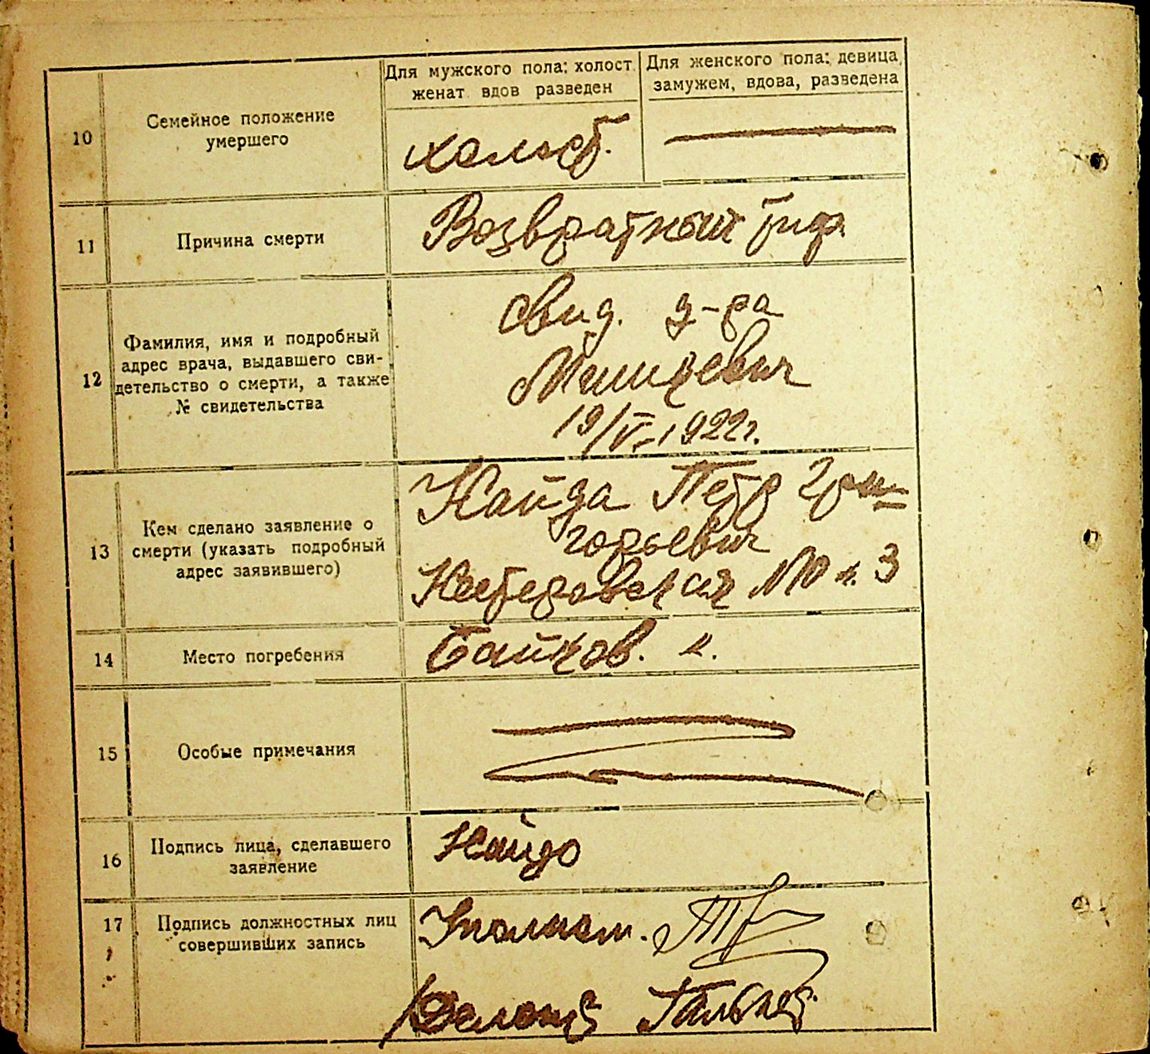 10
Семейное положение
умершего
Для мужского пола: холост
женат вдов разведен
Для женского пола: девица,
замужем, вдова, разведена
холост.
11
Причина смерти
Возвратный тиф
12
Фамилия, имя и подробный
адрес врача, выдавшего сви-
детельство о смерти, а также
№ свидетельства
Свид. д-ра
19/V-1922г.
13
Кем сделано заявление о
смерти (указать подробный
адрес заявившего)
Найда Петр Гри-
горьевич
№ 3
14
Место погребения
Байков. к.
15
Особые примечания
16
Подпись лица, сделавшего
заявление
Найдо
17
Подпись должностных лиц
совершивших запись
Уполном.
Делопр